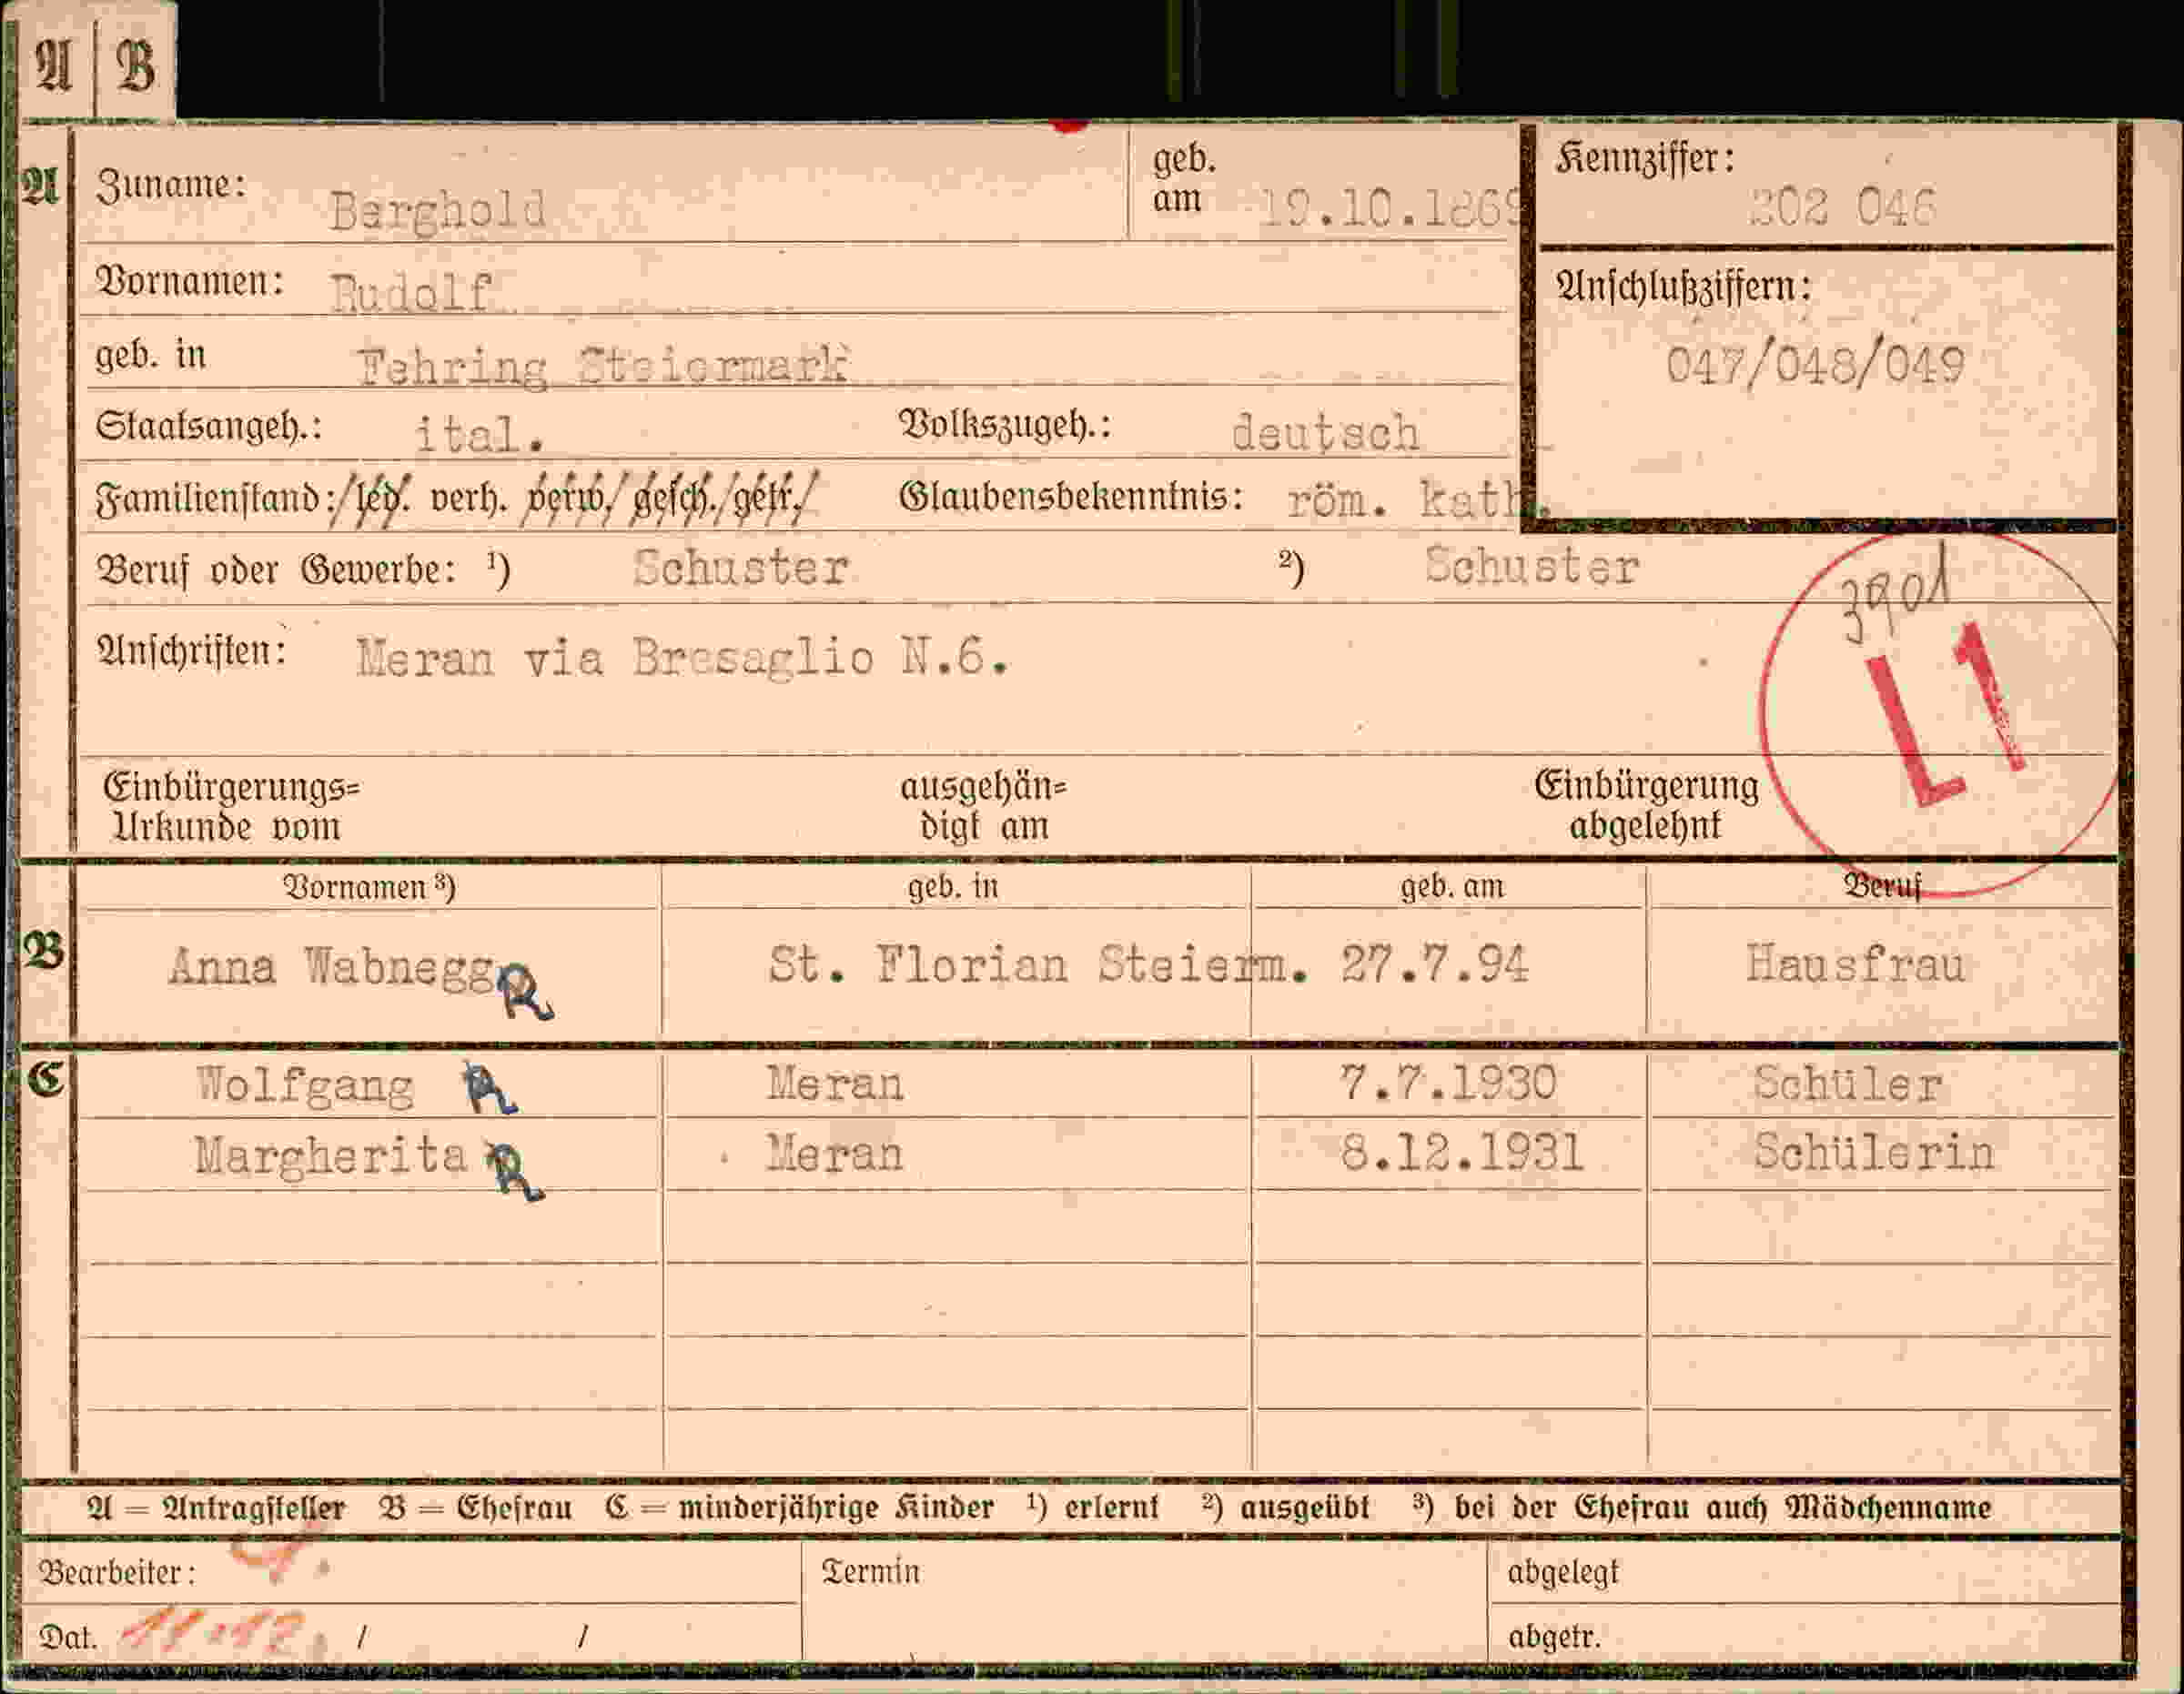 A | B
A Zuname: Berghold geb. am 19.10.1869 Kennziffer: 202 046
Vornamen: Rudolf
Anschlußziffern:
geb. in Fehring Steiermark
047/048/049
Staatsangeh.: ital. Volkszugeh.: deutsch
Familienstand: led. verh. verw. gesch. getr. Glaubensbekenntnis: röm. kath.
Beruf oder Gewerbe: ¹) Schuster ²) Schuster
3901
Anschriften: Meran via Bresaglio N.6.
L1
Einbürgerungs= ausgehän= Einbürgerung
Urkunde vom digt am abgelehnt
Vornamen ³) geb. in geb. am Beruf
B Anna Wabnegg R St. Florian Steierm. 27.7.94 Hausfrau
C Wolfgang R Meran 7.7.1930 Schüler
Margherita R Meran 8.12.1931 Schülerin
A = Antragsteller B = Ehefrau C = minderjährige Kinder ¹) erlernt ²) ausgeübt ³) bei der Ehefrau auch Mädchenname
Bearbeiter: Termin abgelegt
Dat. 11.12. / / abgetr.